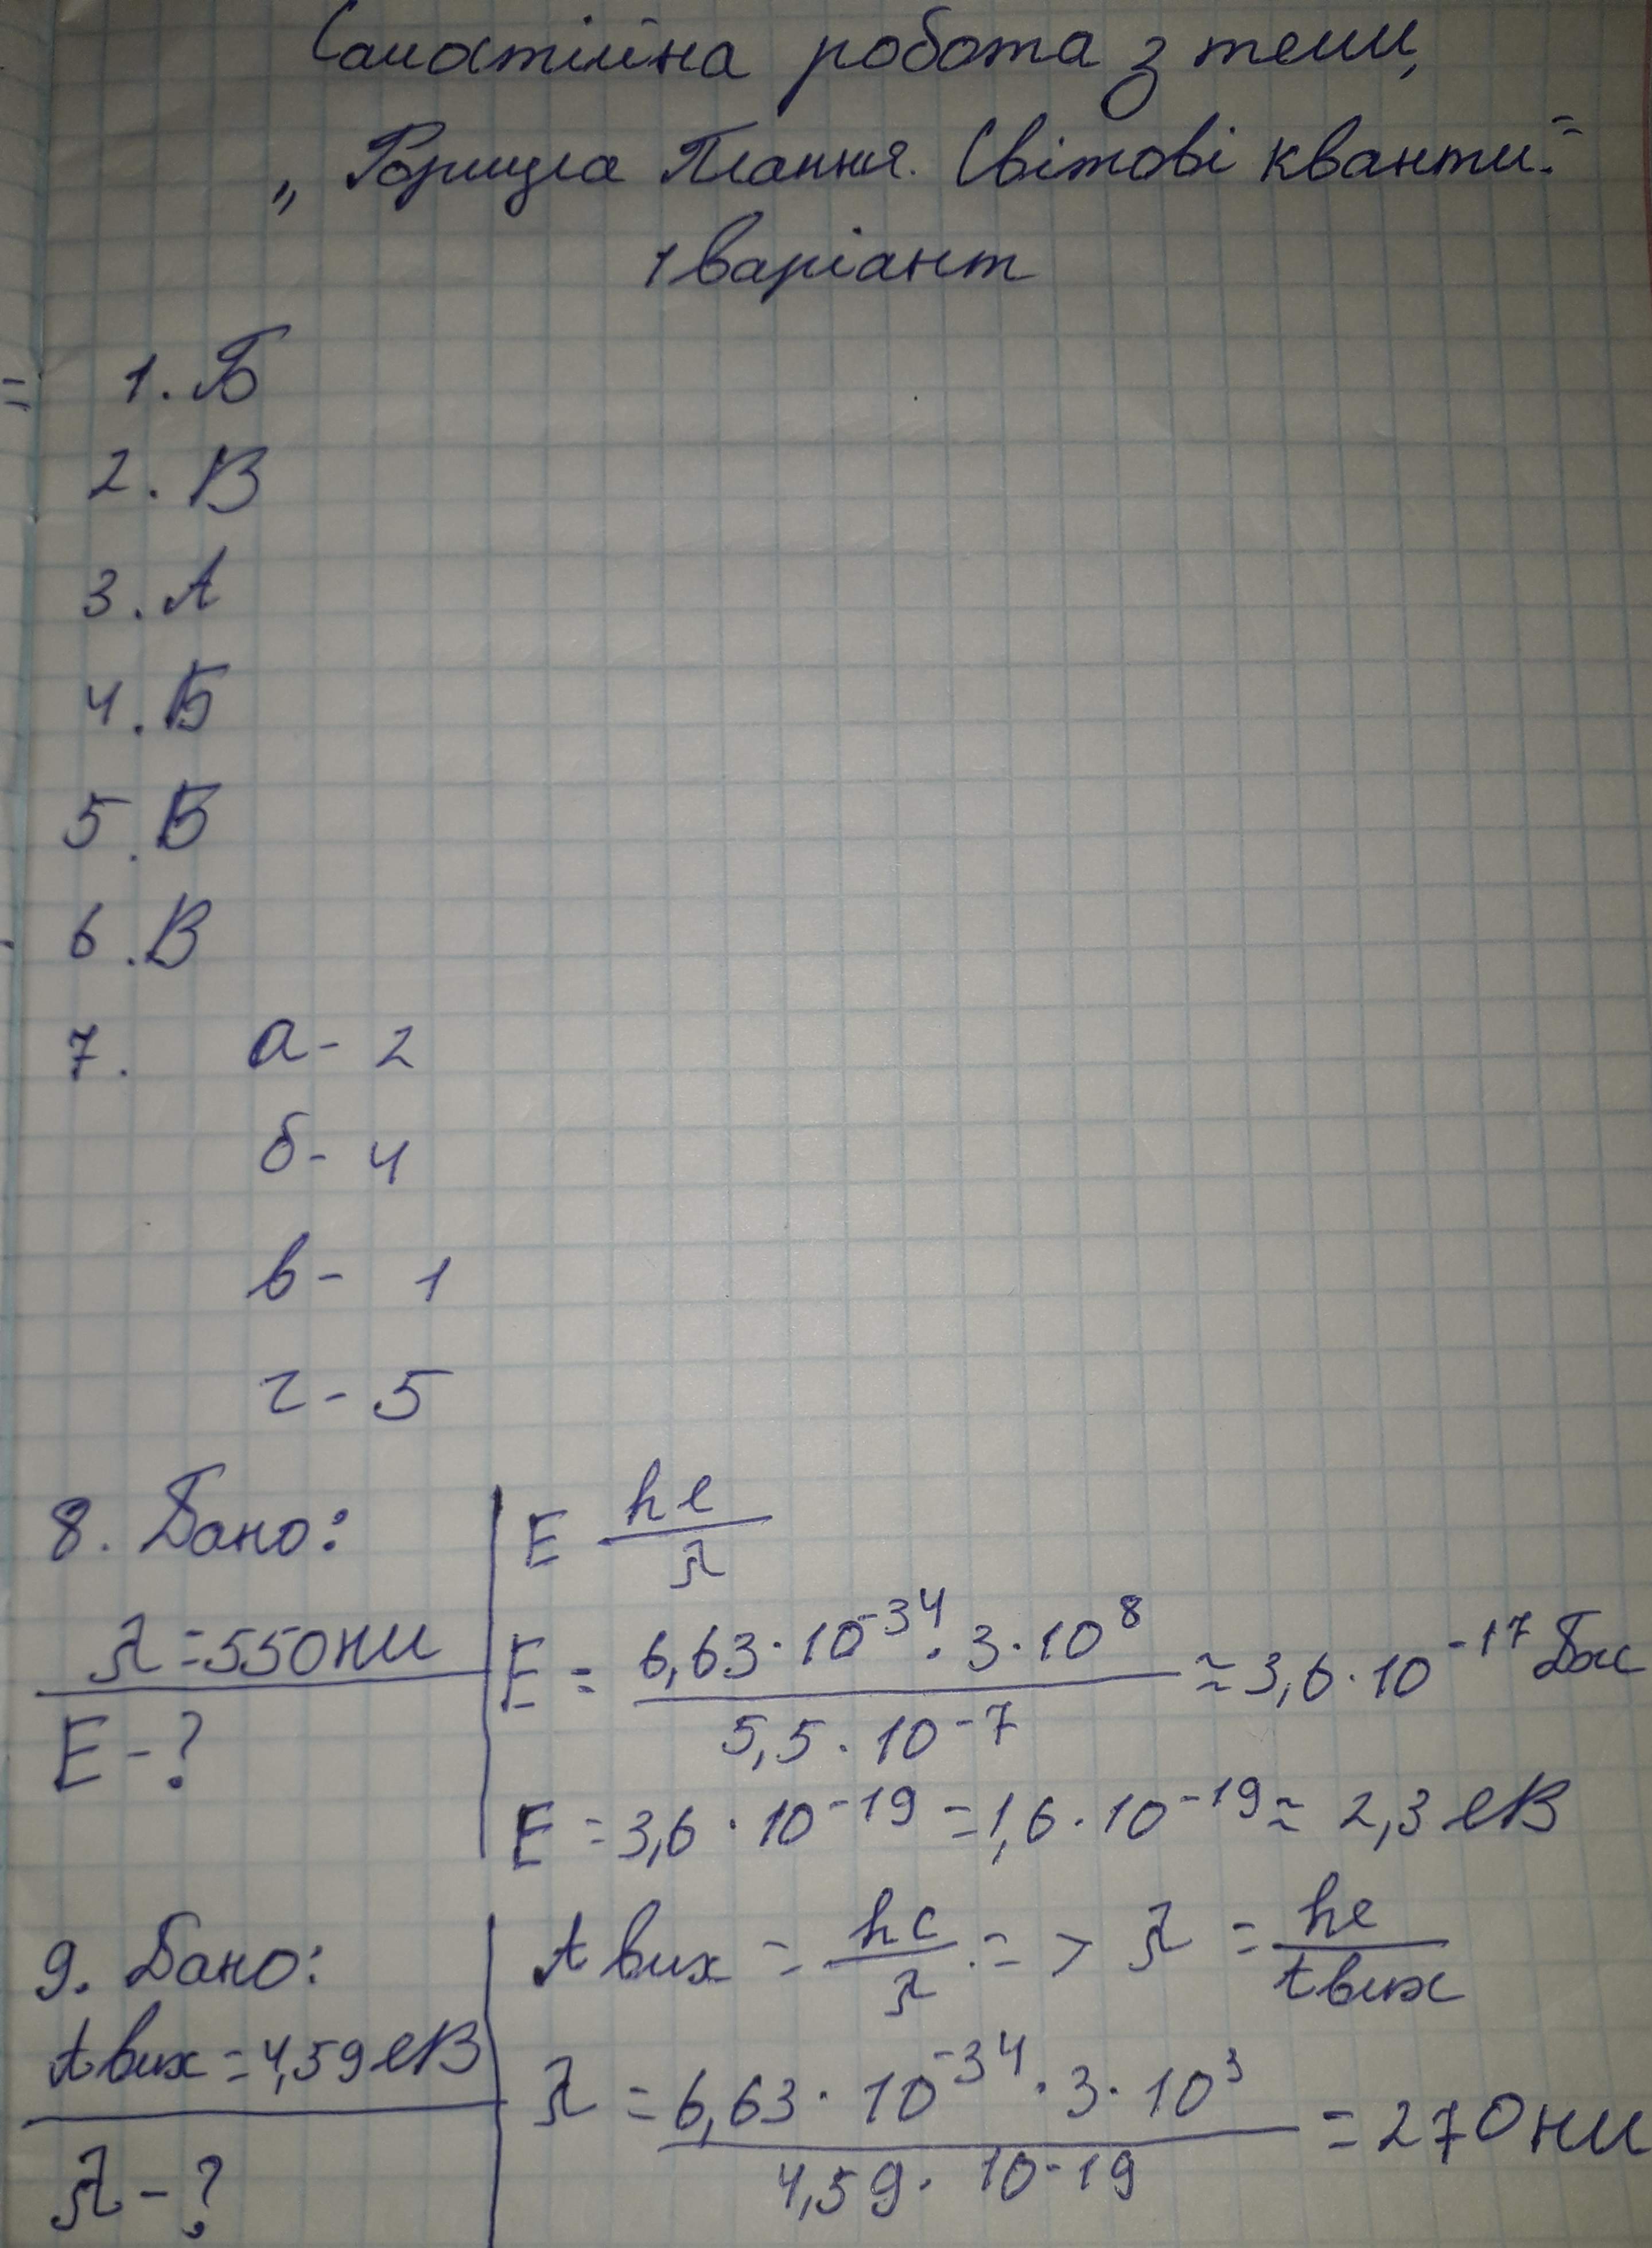 Самостійна робота з теми,
„Формула Планка. Світові кванти."
1 варіант
1. Б
2. В
3. А
4. Б
5. Б
6. В
7. а - 2
б - 4
в - 1
г - 5
8. Дано:
λ = 550 нм
E - ?
E hc/λ
E = 6,63 · 10^-34 · 3 · 10^8 / 5,5 · 10^-7 ≈ 3,6 · 10^-17 Дж
E = 3,6 · 10^-19 = 1,6 · 10^-19 ≈ 2,3 еВ
9. Дано:
Aвих = 4,59 еВ
λ - ?
Aвих = hc/λ => λ = hc/Aвих
λ = 6,63 · 10^-34 · 3 · 10^3 / 4,59 · 10^-19 = 270 нм